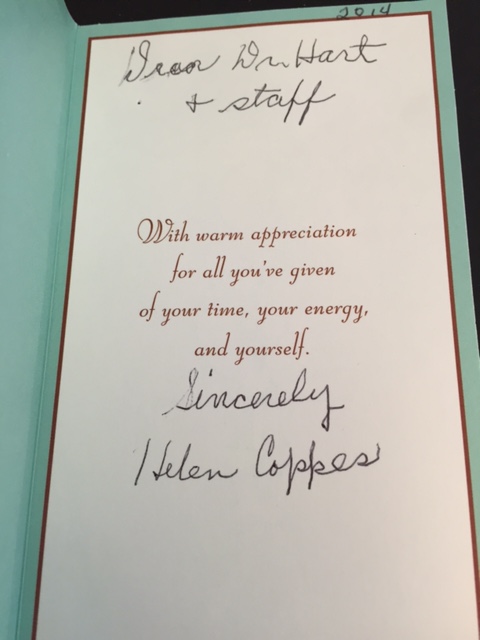 2014
Dear Dr. Hart
+ staff
With warm appreciation
for all you've given
of your time, your energy,
and yourself.
Sincerely
Helen Coppes